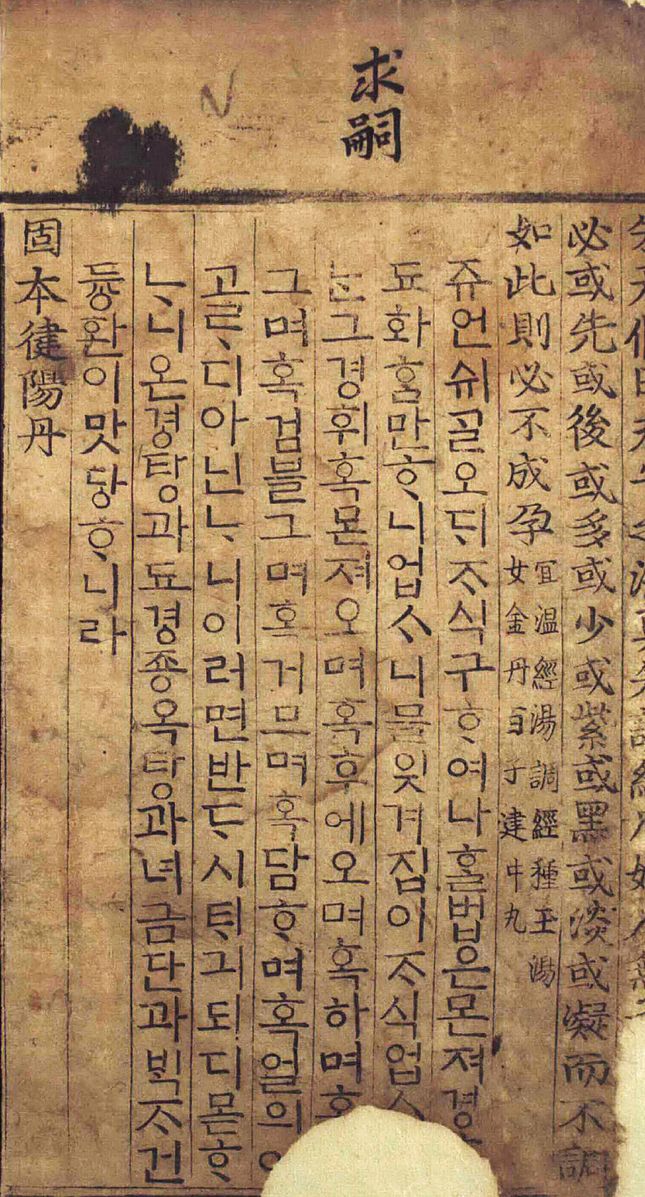 求嗣
之法莫先調經
必或先或後或多或少或紫或黑或淡或凝而不調
如此則必不成孕
宜温經湯調經種玉湯
女金丹百子建中丸
쥬언쉬ᄀᆞᆯ오ᄃᆡᄌᆞ식구ᄒᆞ여나홀법은몬져경
됴화홈만ᄒᆞ니업ᄉᆞ니믈읫겨집이ᄌᆞ식업ᄉᆞ
ᄂᆞᆫ그경휘혹몬져오며혹후에오며혹하며
그며혹검블그며혹거므며혹담ᄒᆞ며혹얼의
고ᄅᆞ디아닌ᄂᆞ니이러면반ᄃᆞ시ᄐᆡ긔되디몯ᄒᆞ
ᄂᆞ니온경탕과됴경죵옥탕과녀금단과ᄇᆡᆨᄌᆞ건
듕환이맛당ᄒᆞ니라
固本健陽丹